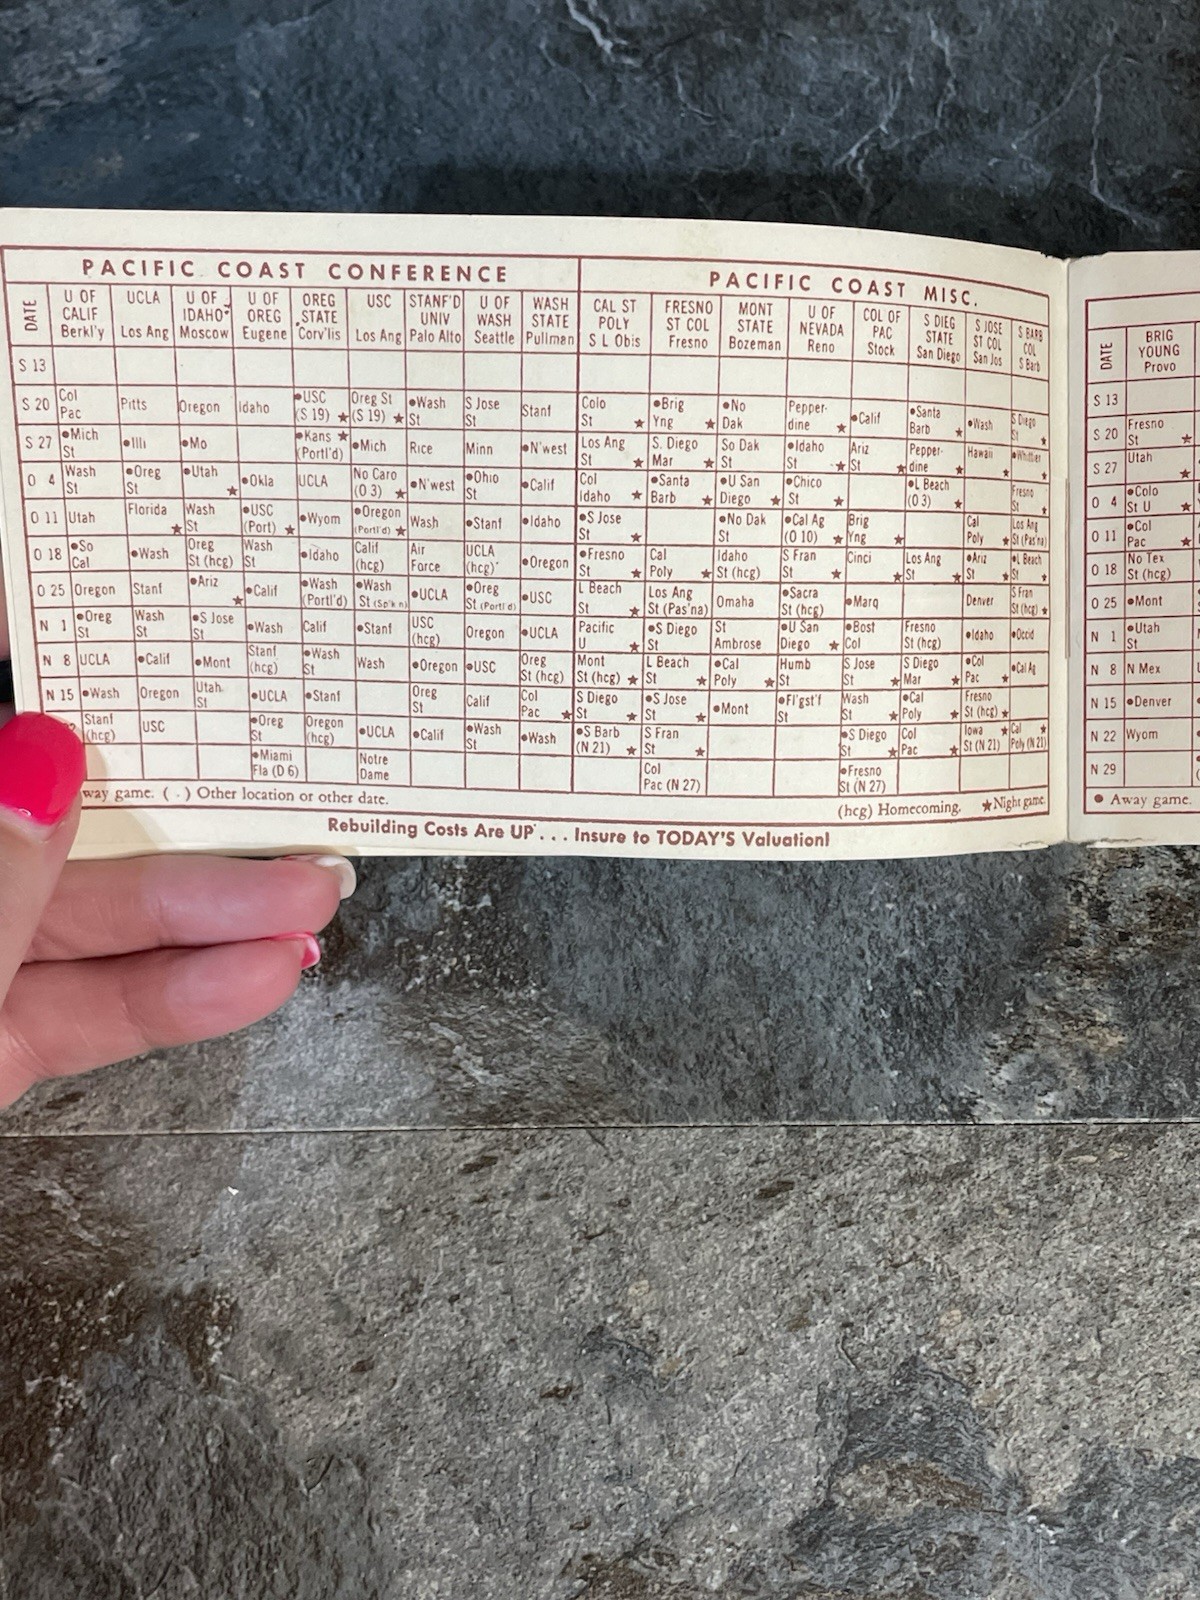 PACIFIC COAST CONFERENCE PACIFIC COAST MISC.
DATE U OF CALIF Berkl'y UCLA Los Ang U OF IDAHO Moscow U OF OREG Eugene OREG STATE Corv'lis USC Los Ang STANF'D UNIV Palo Alto U OF WASH Seattle WASH STATE Pullman CAL ST POLY S L Obis FRESNO ST COL Fresno MONT STATE Bozeman U OF NEVADA Reno COL OF PAC Stock S DIEG STATE San Diego S JOSE ST COL San Jos S BARB COL S Barb DATE BRIG YOUNG Provo
S 13 S 13
S 20 Col Pac Pitts Oregon Idaho ●USC (S 19) ★ Oreg St (S 19) ★ ●Wash St S Jose St Stanf Colo St ★ ●Brig Yng ★ ●No Dak Pepper-dine ★ ●Calif ●Santa Barb ★ ●Wash S Diego St ★ S 20 Fresno St ★
S 27 ●Mich St ●Illi ●Mo ●Kans ★ (Portl'd) ●Mich Rice Minn ●N'west Los Ang St ★ S. Diego Mar ★ So Dak St ●Idaho St ★ Ariz St ★ Pepper-dine ★ Hawaii ★ ●Whittier ★ S 27 Utah ★
O 4 Wash St ●Oreg St ●Utah ★ ●Okla UCLA No Caro (O 3) ★ ●N'west ●Ohio St ●Calif Col Idaho ★ ●Santa Barb ★ ●U San Diego ★ ●Chico St ★ ●L Beach (O 3) ★ Fresno St ★ O 4 ●Colo St U ★
O 11 Utah Florida ★ Wash St ●USC (Port) ★ ●Wyom ●Oregon (Portl'd) ★ Wash ●Stanf ●Idaho ●S Jose St ★ ●No Dak St ●Cal Ag (O 10) ★ Brig Yng ★ Cal Poly ★ Los Ang St (Pas'na) O 11 ●Col Pac ★
O 18 ●So Cal ●Wash Oreg St (hcg) Wash St ●Idaho Calif (hcg) Air Force UCLA (hcg) ●Oregon ●Fresno St ★ Cal Poly ★ Idaho St (hcg) S Fran St ★ Cinci ★ Los Ang St ★ ●Ariz St ★ ●L Beach St ★ O 18 No Tex St (hcg)
O 25 Oregon Stanf ●Ariz ★ ●Calif ●Wash (Portl'd) ●Wash St (Sp'k'n) ●UCLA ●Oreg St (Portl'd) ●USC L Beach St ★ Los Ang St (Pas'na) Omaha ●Sacra St (hcg) ●Marq Denver S Fran St (hcg) ★ O 25 ●Mont
N 1 ●Oreg St Wash St ●S Jose St ●Wash Calif ●Stanf USC (hcg) Oregon ●UCLA Pacific U ★ ●S Diego St St Ambrose ●U San Diego ★ ●Bost Col Fresno St (hcg) ●Idaho ●Occid N 1 ●Utah St
N 8 UCLA ●Calif ●Mont Stanf (hcg) ●Wash St Wash ●Oregon ●USC Oreg St (hcg) Mont St (hcg) ★ L Beach St ★ ●Cal Poly ★ Humb St S Jose St ★ S Diego Mar ★ ●Col Pac ★ ●Cal Ag N 8 N Mex
N 15 ●Wash Oregon Utah St ●UCLA ●Stanf Oreg St Calif Col Pac ★ S Diego St ★ ●S Jose St ★ ●Mont ●Fl'gst'f St Wash St ★ ●Cal Poly ★ Fresno St (hcg) ★ N 15 ●Denver
Stanf (hcg) USC ●Oreg St Oregon (hcg) ●UCLA ●Calif ●Wash St ●Wash ●S Barb (N 21) ★ S Fran St ★ ●S Diego St ★ Col Pac ★ Iowa St (N 21) ★ Cal Poly (N 21) ★ N 22 Wyom
●Miami Fla (D 6) Notre Dame Col Pac (N 27) ●Fresno St (N 27) N 29
way game. ( . ) Other location or other date. (hcg) Homecoming. ★Night game. ● Away game.
Rebuilding Costs Are UP . . . Insure to TODAY'S Valuation!